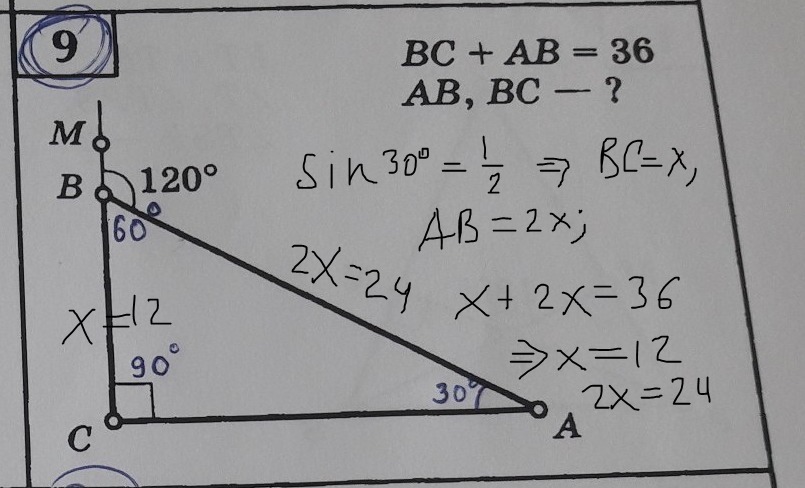 9
BC + AB = 36
AB, BC — ?
M
B
120°
sin 30° = 1/2 ⇒ BC = x,
60°
AB = 2x;
2x = 24
x + 2x = 36
x = 12
⇒ x = 12
90°
30°
2x = 24
C
A